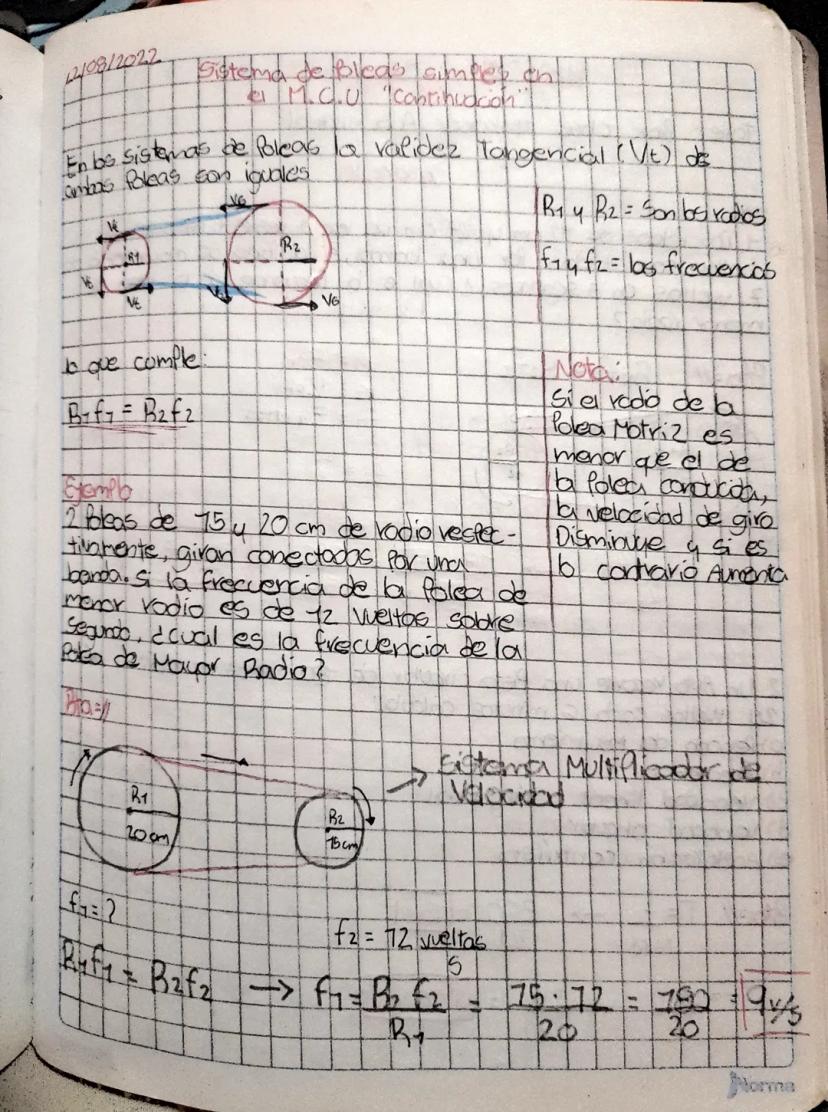 12/08/2022
Sistema de Poleas simples en
el M.C.U "Continucion"
En los sistemas de Poleas la validez Tangencial (Vt) de
ambas Poleas son iguales
R1 y R2 = Son los radios
f1 y f2 = las frecuencias
Vt
R1
Vt
Vt
VG
R2
VG
lo que comple:
R1f1 = R2f2
Nota:
Si el radio de la
Polea Motriz es
menor que el de
la Polea conducida,
la velocidad de giro
Disminuye y si es
lo contrario Aumenta
Ejemplo
2 Poleas de 15 y 20 cm de radio respec-
tivamente, giran conectadas Por una
banda. Si la frecuencia de la Polea de
menor radio es de 12 vueltas sobre
Segundo, ¿cual es la frecuencia de la
Polea de Mayor Radio?
Rta=//
R1
20cm
R2
15cm
Sistema Multiplicador de
Velocidad
f1 = ?
f2 = 12 vueltas
S
R1f1 = R2f2 → f1 = R2 f2 / R1 = 15 · 12 / 20 = 180 / 20 = 9 v/s
Norma